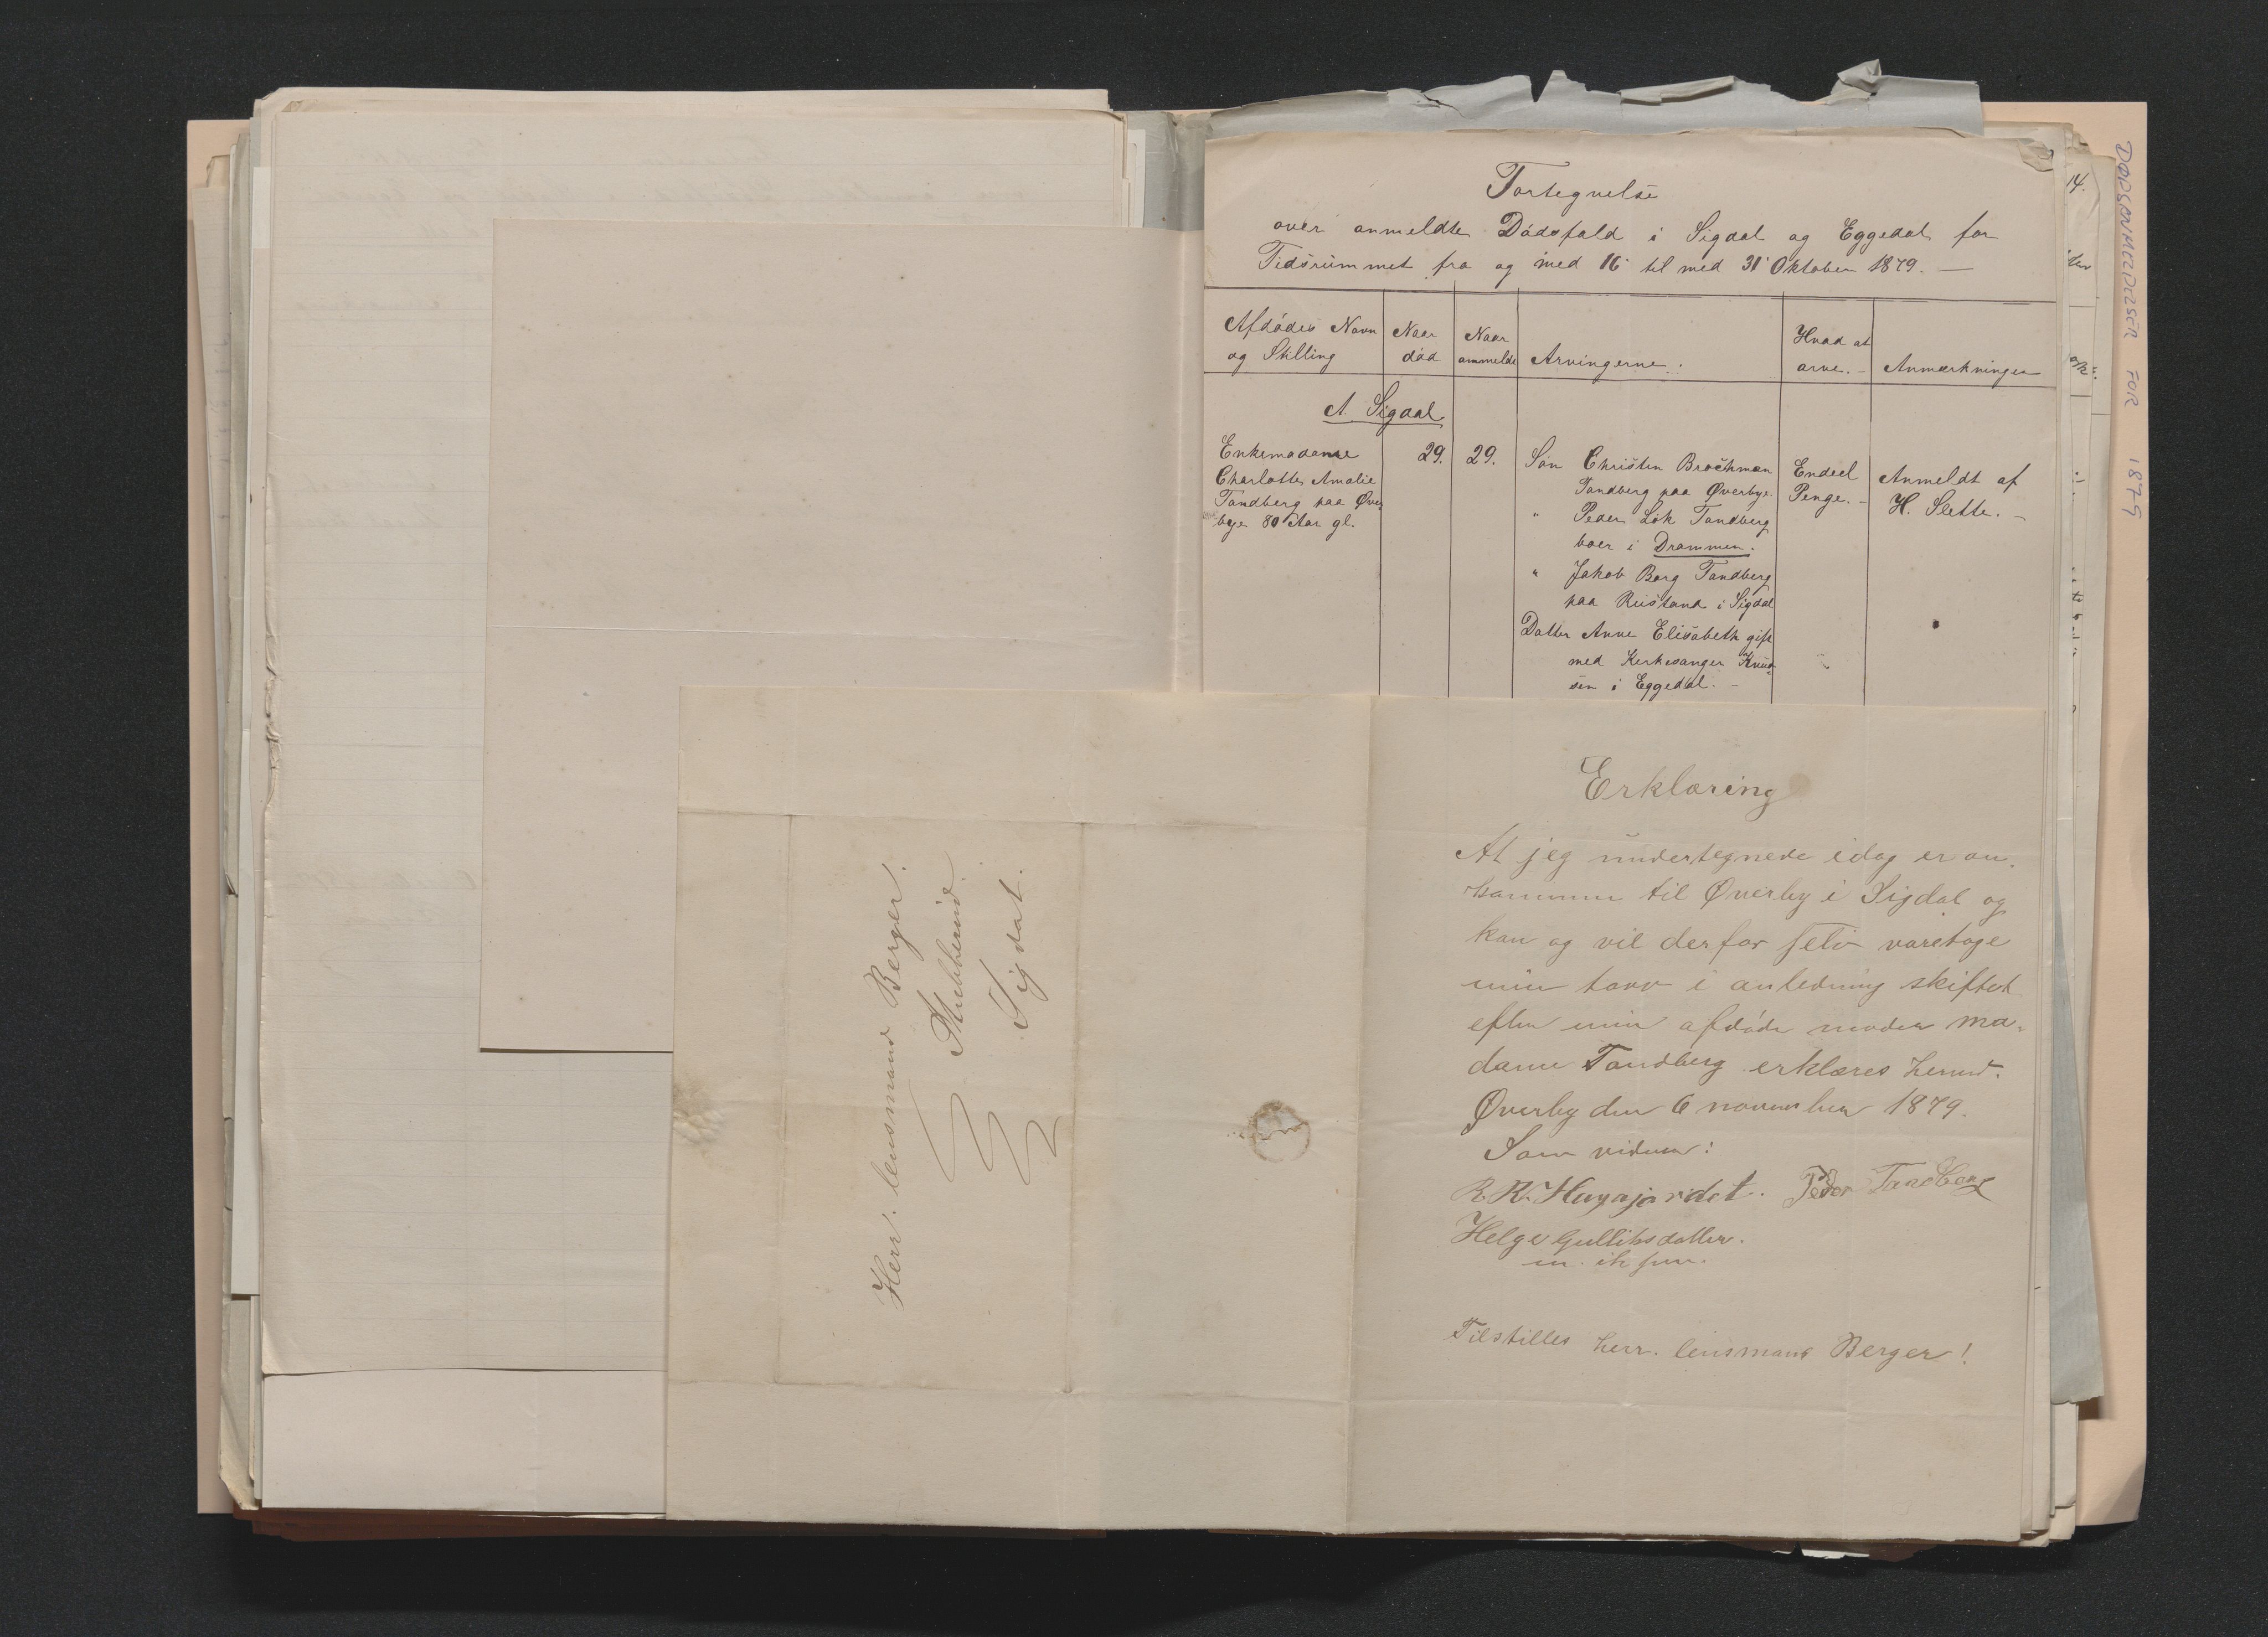 Fortegnelse
over anmeldte Dødsfald i Sigdal og Eggedal for
Tidsrummet fra og med 16 til med 31 Oktober 1879. —
Afdødes Navn og Stilling
Naar død
Naar anmeldt
Arvingerne.
Hvad at arve. -
Anmærkninger
A. Sigdal
Enkemadame
Charlotte Amalie
Tandberg paa Øver
bye 80 Aar gl.
29.
29.
Søn Christen Brochman
Tandberg paa Øverbye.
" Peder Lok Tandberg
boer i Drammen.
" Jakob Borg Tandberg
paa Rustand i Sigdal
Datter Anne Elisabeth gift
med Kirkesanger Knud-
sen i Eggedal. -
Endeel
Penge. -
Anmeldt af
H. Slette. -
Erklæring
At jeg undertegnede idag er an-
kommen til Øverby i Sigdal og
kan og vil derfor selv varetage
min tarv i anledning skiftet
efter min afdøde moder ma-
dame Tandberg erklæres herved.
Øverby den 6 november 1879.
Som vidner:
Peder Tandberg
Helge Gulliksdatter.
m. ih. pen.
Tilstilles herr. lensmand Berger!
Herr. lensmand Berger.
Sigdal.
DØDSANMELDELSER FOR 1879
14.